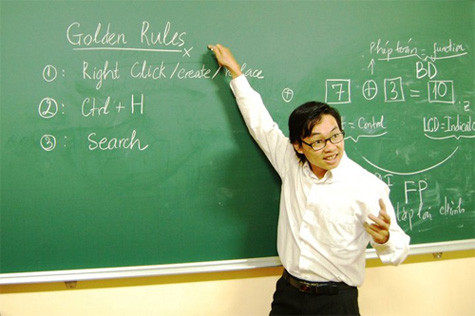 Golden Rules
① : Right Click/create/replace
② : Ctrl + H
③ : Search
Phép toán = function
BD
7 + 3 = 10
= Control
LCD =
FP